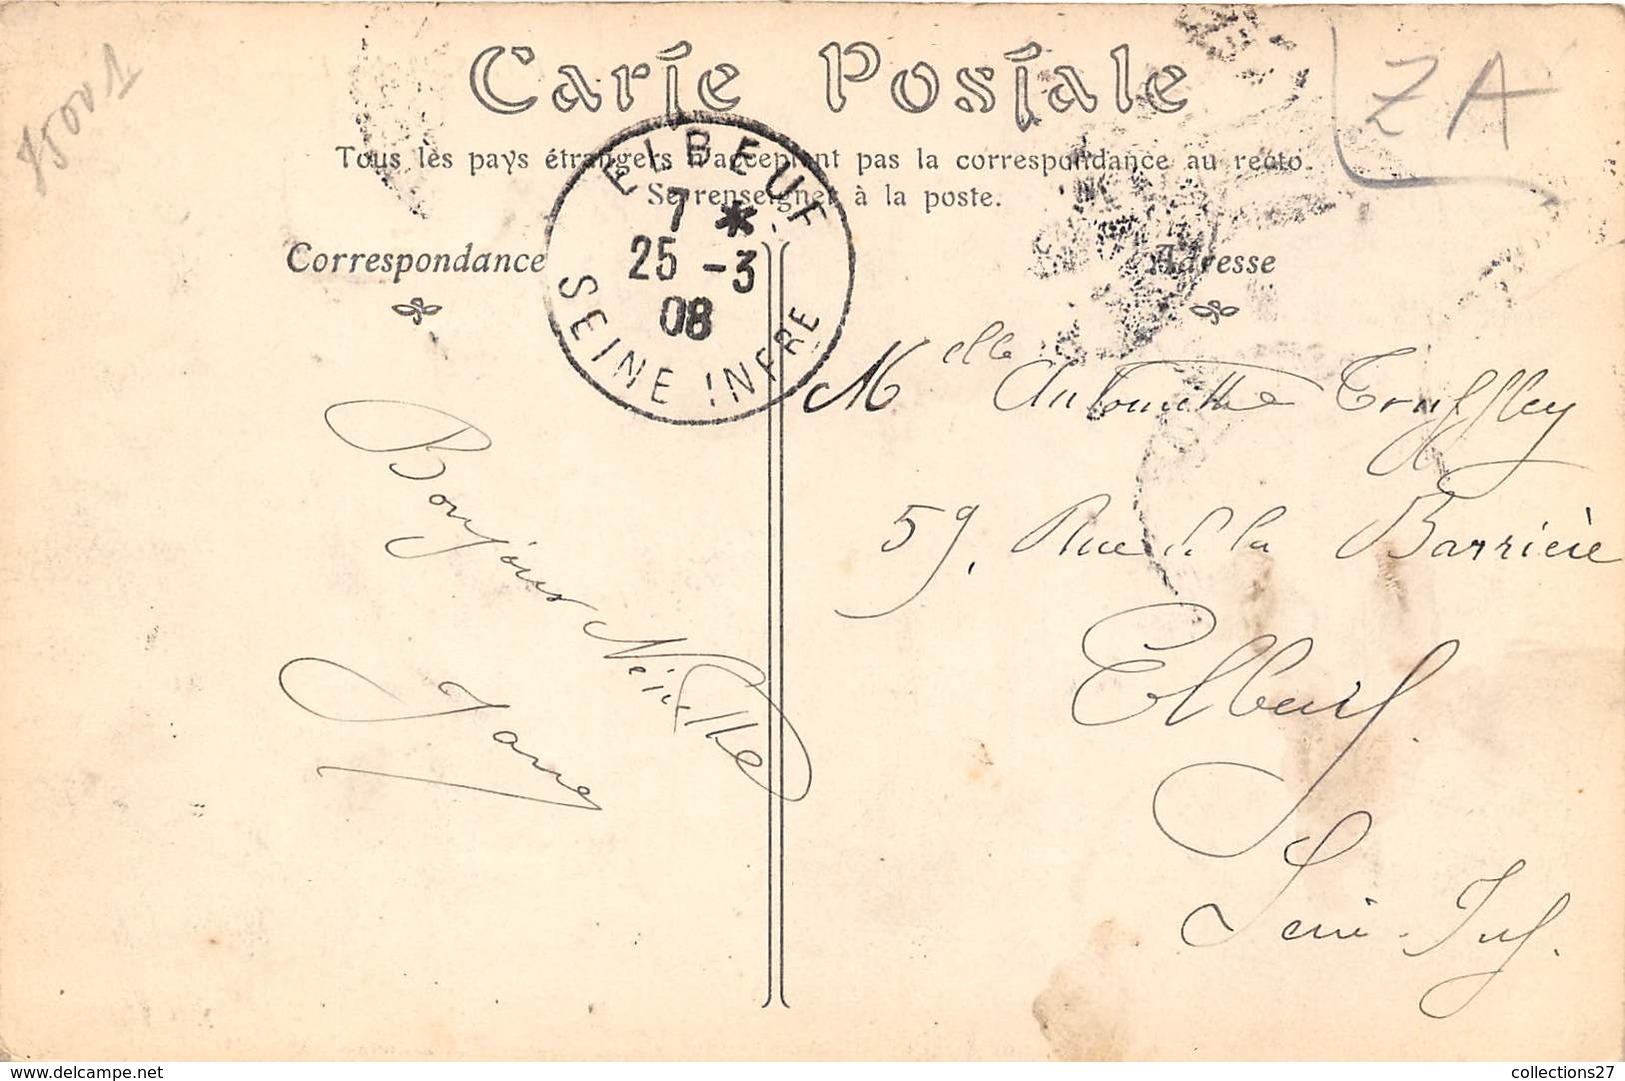 75001
Carte Postale
ZA
Tous les pays étrangers n'acceptent pas la correspondance au recto.
Se renseigner à la poste.
ELBEUF
7 *
25 -3
08
SEINE INFRE
Correspondance
Adresse
Melle Antoinette Truffley
59, Rue de la Barrière
Elbeuf
Seine-Inf.
Bonjour Nénette
Jane
www.delcampe.net
collections27